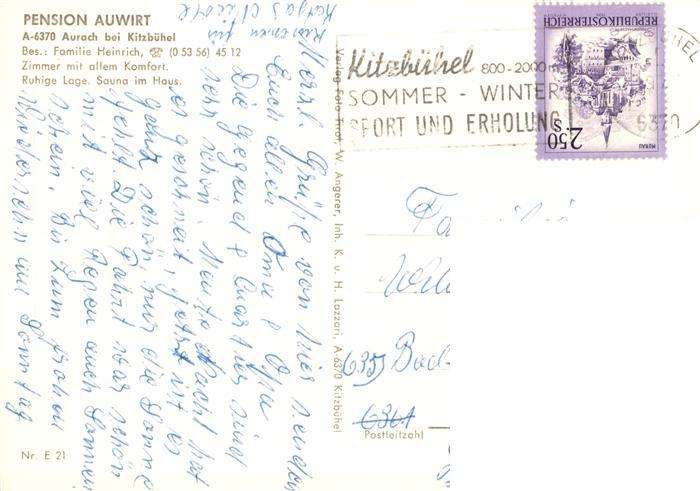 PENSION AUWIRT
A-6370 Aurach bei Kitzbühel
Bes.: Familie Heinrich, ☎ (0 53 56) 45 12
Zimmer mit allem Komfort.
Ruhige Lage. Sauna im Haus.
Herzl. Grüße von hier senden
Euch allen Oma & Opa
Die Gegend & Quartier sind
sehr schön. Heute Nacht hat
es geschneit, jetzt ist es
ganz schön, nur die Sonne
fehlt. Die Fahrt war schön
mit viel Regen auch Sonnen
schein. Bis zum frohen
Wiedersehn am Sonntag
Nr. E 21
Verlag Foto Tirol, W. Angerer, Inh. K. u. H. Lazzari, A-6370 Kitzbühel
Kitzbühel 800-2000m
SOMMER - WINTER
SPORT UND ERHOLUNG
6370
REPUBLIK ÖSTERREICH
2.50
S
MURAU
Fa
635) Bad
6361
Postleitzahl